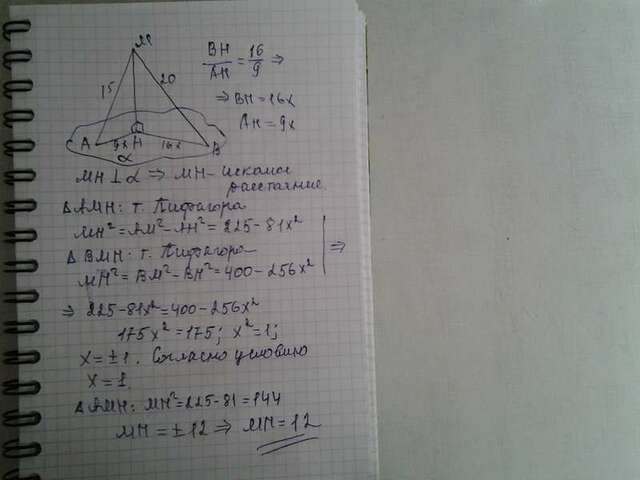 M
15
20
A
9x
H
16x
B
α
BH/AH = 16/9 ⇒
⇒ BH = 16x
AH = 9x
MH ⊥ α ⇒ MH - искомое
расстояние.
Δ AMH: т. Пифагора
MH² = AM² - AH² = 225 - 81x²
Δ BMH: т. Пифагора
MH² = BM² - BH² = 400 - 256x²
⇒
⇒ 225 - 81x² = 400 - 256x²
175x² = 175; x² = 1;
x = ±1. Согласно условию
x = 1.
Δ AMH: MH² = 225 - 81 = 144
MH = ±12 ⇒ MH = 12